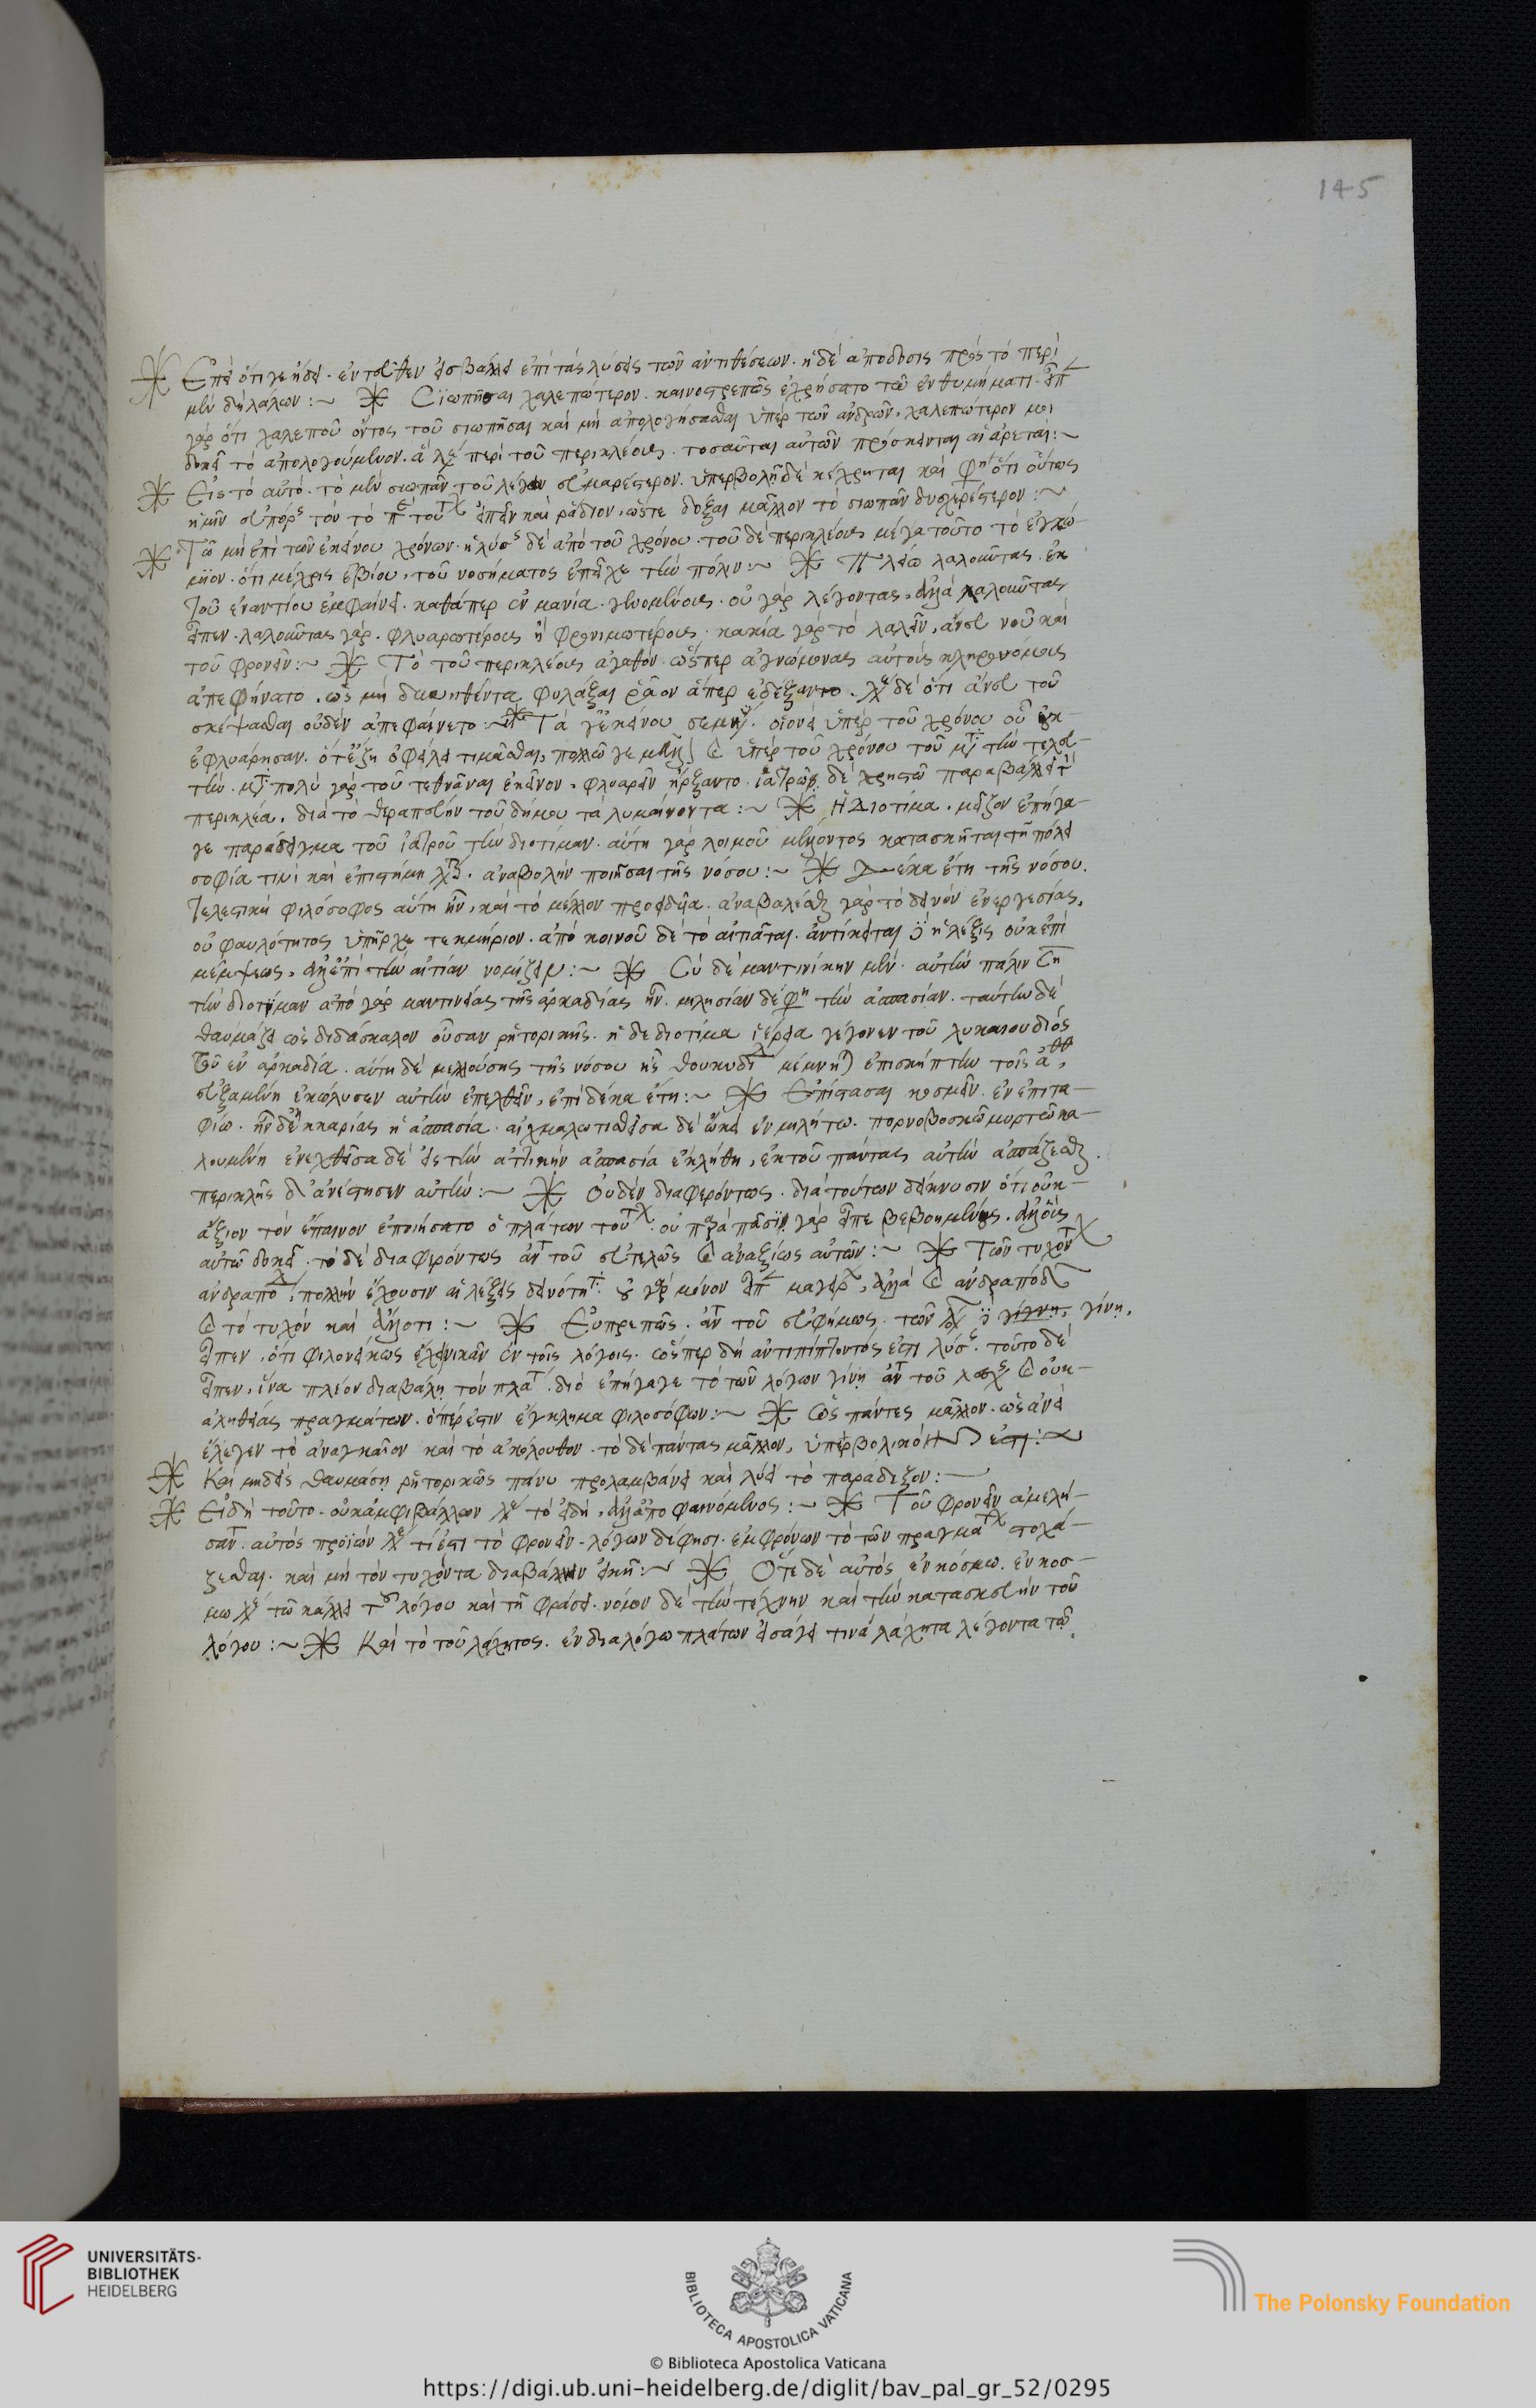 145
Ἐπεὶ ὅτι γε ᾔδει. ἐντεῦθεν εἰσβάλλει ἐπὶ τὰς λύσεις τῶν ἀντιθέσεων. ἡ δὲ ἀπόδοσις πρὸς τὸ περὶ
μὲν δὴ λάλων :~ Σϊωπῆσαι χαλεπώτερον. καινοπρεπῶς ἐχρήσατο τῶ ἐνθυμήματι.
γὰρ ὅτι χαλεποῦ ὄντος τοῦ σιωπῆσαι καὶ μὴ ἀπολογήσασθαι ὑπὲρ τῶν ἀνδρῶν, χαλεπώτερον μοι
δοκεῖ τὸ ἀπολογούμενον. ἃ λέγει περὶ τοῦ περικλέους. τοσαῦται αὐτῶν πρόσκεινται αἱ ἀρεταί :~
Εἰς τὸ αὐτό. τὸ μὲν σιωπᾶν τοῦ λέγειν εὐμαρέστερον. ὑπερβολῇ δὲ κέχρηται καὶ φη ὅτι οὕτως
ἡμῖν εὔπορος τὸν τὸ εἰπεῖν καὶ ράδιον, ὥστε δόξαι μᾶλλον τὸ σιωπᾶν δυσχερέστερον :~
Τῶ μὴ ἐπὶ τῶν ἐκείνου χρόνων. ἡ λύσις δὲ ἀπὸ τοῦ χρόνου. τοῦ δὲ περικλέους μέγα τοῦτο τὸ ἐγκώ-
μϊον. ὅτι μέχρις ἐβίου, τοῦ νοσήματος ἐπεῖχε τὴν πόλιν :~ Πλείω λαλοῦντας. ἐκ
τοῦ ἐναντίου ἐμφαίνει. καθάπερ ἐν μανία γενομένους. οὐ γὰρ λέγοντας, ἀλλὰ λαλοῦντας
εἶπεν. λαλοῦντας γὰρ. φλυαρωτέρους ἢ φρονιμωτέρους. κακία γὰρ τὸ λαλεῖν, ἄνευ νοῦ καὶ
τοῦ φρονεῖν :~ Τὸ τοῦ περικλέους ἀγαθόν. ὥσπερ ἀγνώμονας αὐτοὺς κληρονόμους
ἀπεφήνατο, ὡς μὴ δυνηθέντα φυλάξαι ῥᾶον ἅπερ ἐδέξαντο. λέγει δὲ ὅτι ἄνευ τοῦ
σκέψασθαι οὐδὲν ἀπεφαίνετο :~ Τά γ' ἐκείνου σεμνὰ. οἱονεὶ ὑπὲρ τοῦ χρόνου οὗ ἐκ-
ἐφλυάρησαν. ὅτ' ἔζη ὀφείλει τιμᾶσθαι, πολλῶ γε μᾶλλον καὶ ὑπὲρ τοῦ χρόνου τοῦ μετὰ τὴν τελευ-
τὴν. μετὰ πολὺ γὰρ τοῦ τεθνᾶναι ἐκεῖνον, φλυαρεῖν ἤρξαντο. ἰατρῶ δὲ χρηστῶ παραβάλλει τὸν
περικλέα, διὰ τὸ θεραπεύειν τοῦ δήμου τὰ λυμαίνοντα :~ Ἡ Διοτίμα. μεῖζον ἐπήγα-
γε παράδειγμα τοῦ ἰατροῦ τὴν διοτίμαν. αὕτη γὰρ λοιμοῦ μέλλοντος κατασκῆπται τῆ πόλει
σοφία τινὶ καὶ ἐπιστήμη. ἀναβολὴν ποιῆσαι τῆς νόσου :~ Δέκα ἔτη τῆς νόσου.
τελεστικὴ φιλόσοφος αὕτη ἦν, καὶ τὸ μέλλον προειδυῖα. ἀναβαλέσθαι γὰρ τὸ δεινὸν ἐνεργεσίας,
οὐ φαυλότητος ὑπῆρχε τεκμήριον. ἀπὸ κοινοῦ δὲ τὸ αἰτιᾶται. ἀντίκειται ἡ λέξις οὐκ ἐπὶ
μέμψεως, ἀλλ' ἐπὶ τὴν αἰτίαν νομίζειν :~ Σὺ δὲ μαντινίκην μὲν. αὐτὴν πάλιν
τὴν διοτίμαν ἀπὸ γὰρ μαντινείας τῆς ἀρκαδίας ἦν. μιλησίαν δέ φη τὴν ἀσπασίαν. ταύτην δὲ
θαυμάζει ὡς διδάσκαλον οὖσαν ῥητορικῆς. ἡ δὲ διοτίμα ἱέρεια γέγονεν τοῦ λυκαιου διὸς
τοῦ ἐν ἀρκαδία. αὕτη δὲ μελλούσης τῆς νόσου ἧς θουκυδί μέμνηται ἐπισκήπτειν τοῖς ἀθ,
εὐξαμένη ἐκώλυσεν αὐτὴν ἐπελθεῖν, ἐπὶ δέκα ἔτη :~ Ἐπίστασαι κοσμεῖν. ἐν ἐπιτα-
φίω. ἦν δὲ ἐκ καρίας ἡ ἀσπασία. αἰχμαλωτισθεῖσα δὲ ᾤκει ἐν μιλήτω. πορνοβοσκῶ μυρτῶ κα-
λουμένη ἐνεχθεῖσα δὲ εἰς τὴν ἀττικὴν ἀσπασία ἐκλήθη, ἐκ τοῦ πάντας αὐτὴν ἀσπάζεσθαι.
περικλῆς δ' ἀνέστησεν αὐτὴν :~ Οὐδὲν διαφερόντως. διὰ τούτων δείκνυσιν ὅτι οὐκ-
ἄξιον τὸν ἔπαινον ἐποιήσατο ὁ πλάτων. οὐ παρὰ πᾶσϊν γὰρ εἶπε βεβοημένους, ἀλλ' οἷς
αὐτῶ δοκεῖ. τὸ δὲ διαφερόντως ἀντὶ τοῦ εὐτελῶς καὶ ἀναξίως αὐτῶν :~ Τῶν τυχόντων
ἀνδραπό, πολλὴν ἔχουσιν αἱ λέξεις δεινότητα. οὐ γὰρ μόνον εἶπε μαγειρ, ἀλλὰ καὶ ἀνδραπόδων
καὶ τὸ τυχὸν καὶ ἄλλο τι :~ Εὐπρεπῶς. ἀντὶ τοῦ εὐφήμως. τῶν γίγνη, γίνη,
εἶπεν, ὅτι φιλονείκως ἐλεινικᾶν ἐν τοῖς λόγοις. ὥσπερ δὴ ἀντιπίπτοντός ἐστι λύσις. τοῦτο δὲ
εἶπεν, ἵνα πλέον διαβάλη τὸν πλάτ. διὸ ἐπήγαγε τὸ τῶν λόγων γίνη ἀντὶ τοῦ λαχ καὶ οὐκ-
ἀληθείας πραγμάτων. ὅπερ ἐστιν ἔγκλημα φιλοσόφων :~ Ὡς πάντες μᾶλλον. ὡς ἀνεὶ
ἔλεγεν τὸ ἀναγκαῖον καὶ τὸ ἀκόλουθον. τὸ δὲ πάντας μᾶλλον, ὑπερβολικόν ἐστι :~
Καὶ μηδεὶς θαυμάση ῥητορικῶς πάνυ προλαμβάνει καὶ λύει τὸ παράδοξον :—
Εἰ δὴ τοῦτο. οὐκ ἀμφιβάλλων λέγει τὸ εἰ δὴ, ἀλλ' ἀποφαινόμενος :~ Τοῦ φρονεῖν ἀμελή-
σαντ. αὐτὸς προϊὼν λέγει τί ἐστι τὸ φρονεῖν. λόγων δέ φησι. ἐμφρόνων τὸ τῶν πραγμάτων στοχά-
ζεσθαι. καὶ μὴ τὸν τυχόντα διαβάλλειν εἰκῆ :~ Ὅτε δὲ αὐτὸς ἐν κόσμω. ἐν κοσ-
μω λέγει τῶ κάλλει τοῦ λόγου καὶ τῆ φράσει. νόμον δὲ τὴν τέχνην καὶ τὴν κατασκευὴν τοῦ
λόγου :~ Καὶ τὸ τοῦ λάχητος. ἐν διαλόγω πλάτων εἰσάγει τινὰ λάχητα λέγοντα τῶ
UNIVERSITÄTS-
BIBLIOTHEK
HEIDELBERG
BIBLIOTECA APOSTOLICA VATICANA
The Polonsky Foundation
© Biblioteca Apostolica Vaticana
https://digi.ub.uni-heidelberg.de/diglit/bav_pal_gr_52/0295